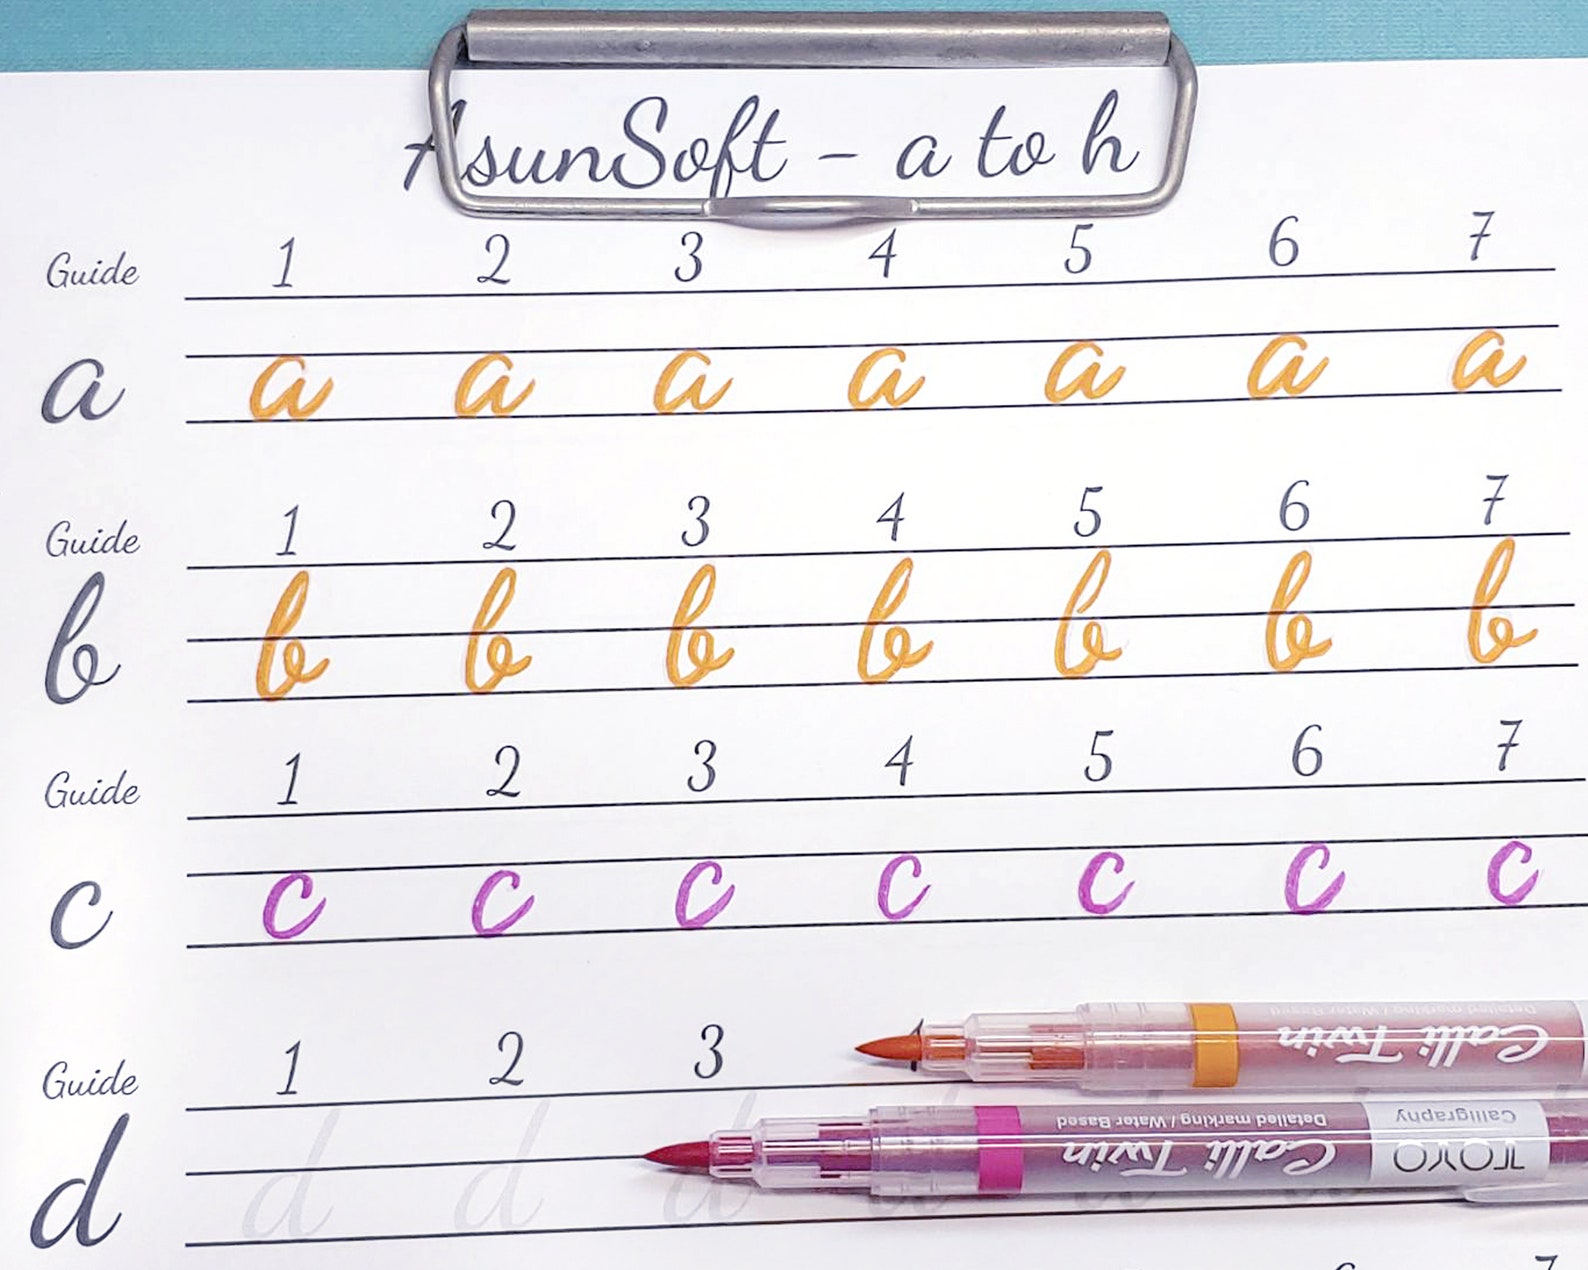 AsunSoft - a to h
Guide 1 2 3 4 5 6 7
a a a a a a a a
Guide 1 2 3 4 5 6 7
b b b b b b b b
Guide 1 2 3 4 5 6 7
c c c c c c c c
Guide 1 2 3
d d d d d d
Calli Twin Detailed marking / Water Based
Calli Twin Detailed marking / Water Based TOYO Calligraphy
6 7